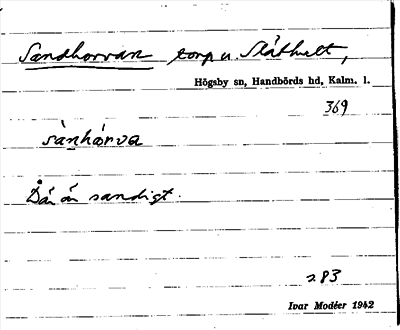 Sandhorvan torp u. Slåthult,
Högsby sn, Handbörds hd, Kalm. l.
369
sànhárva
Där är sandigt.
283
Ivar Modéer 1942